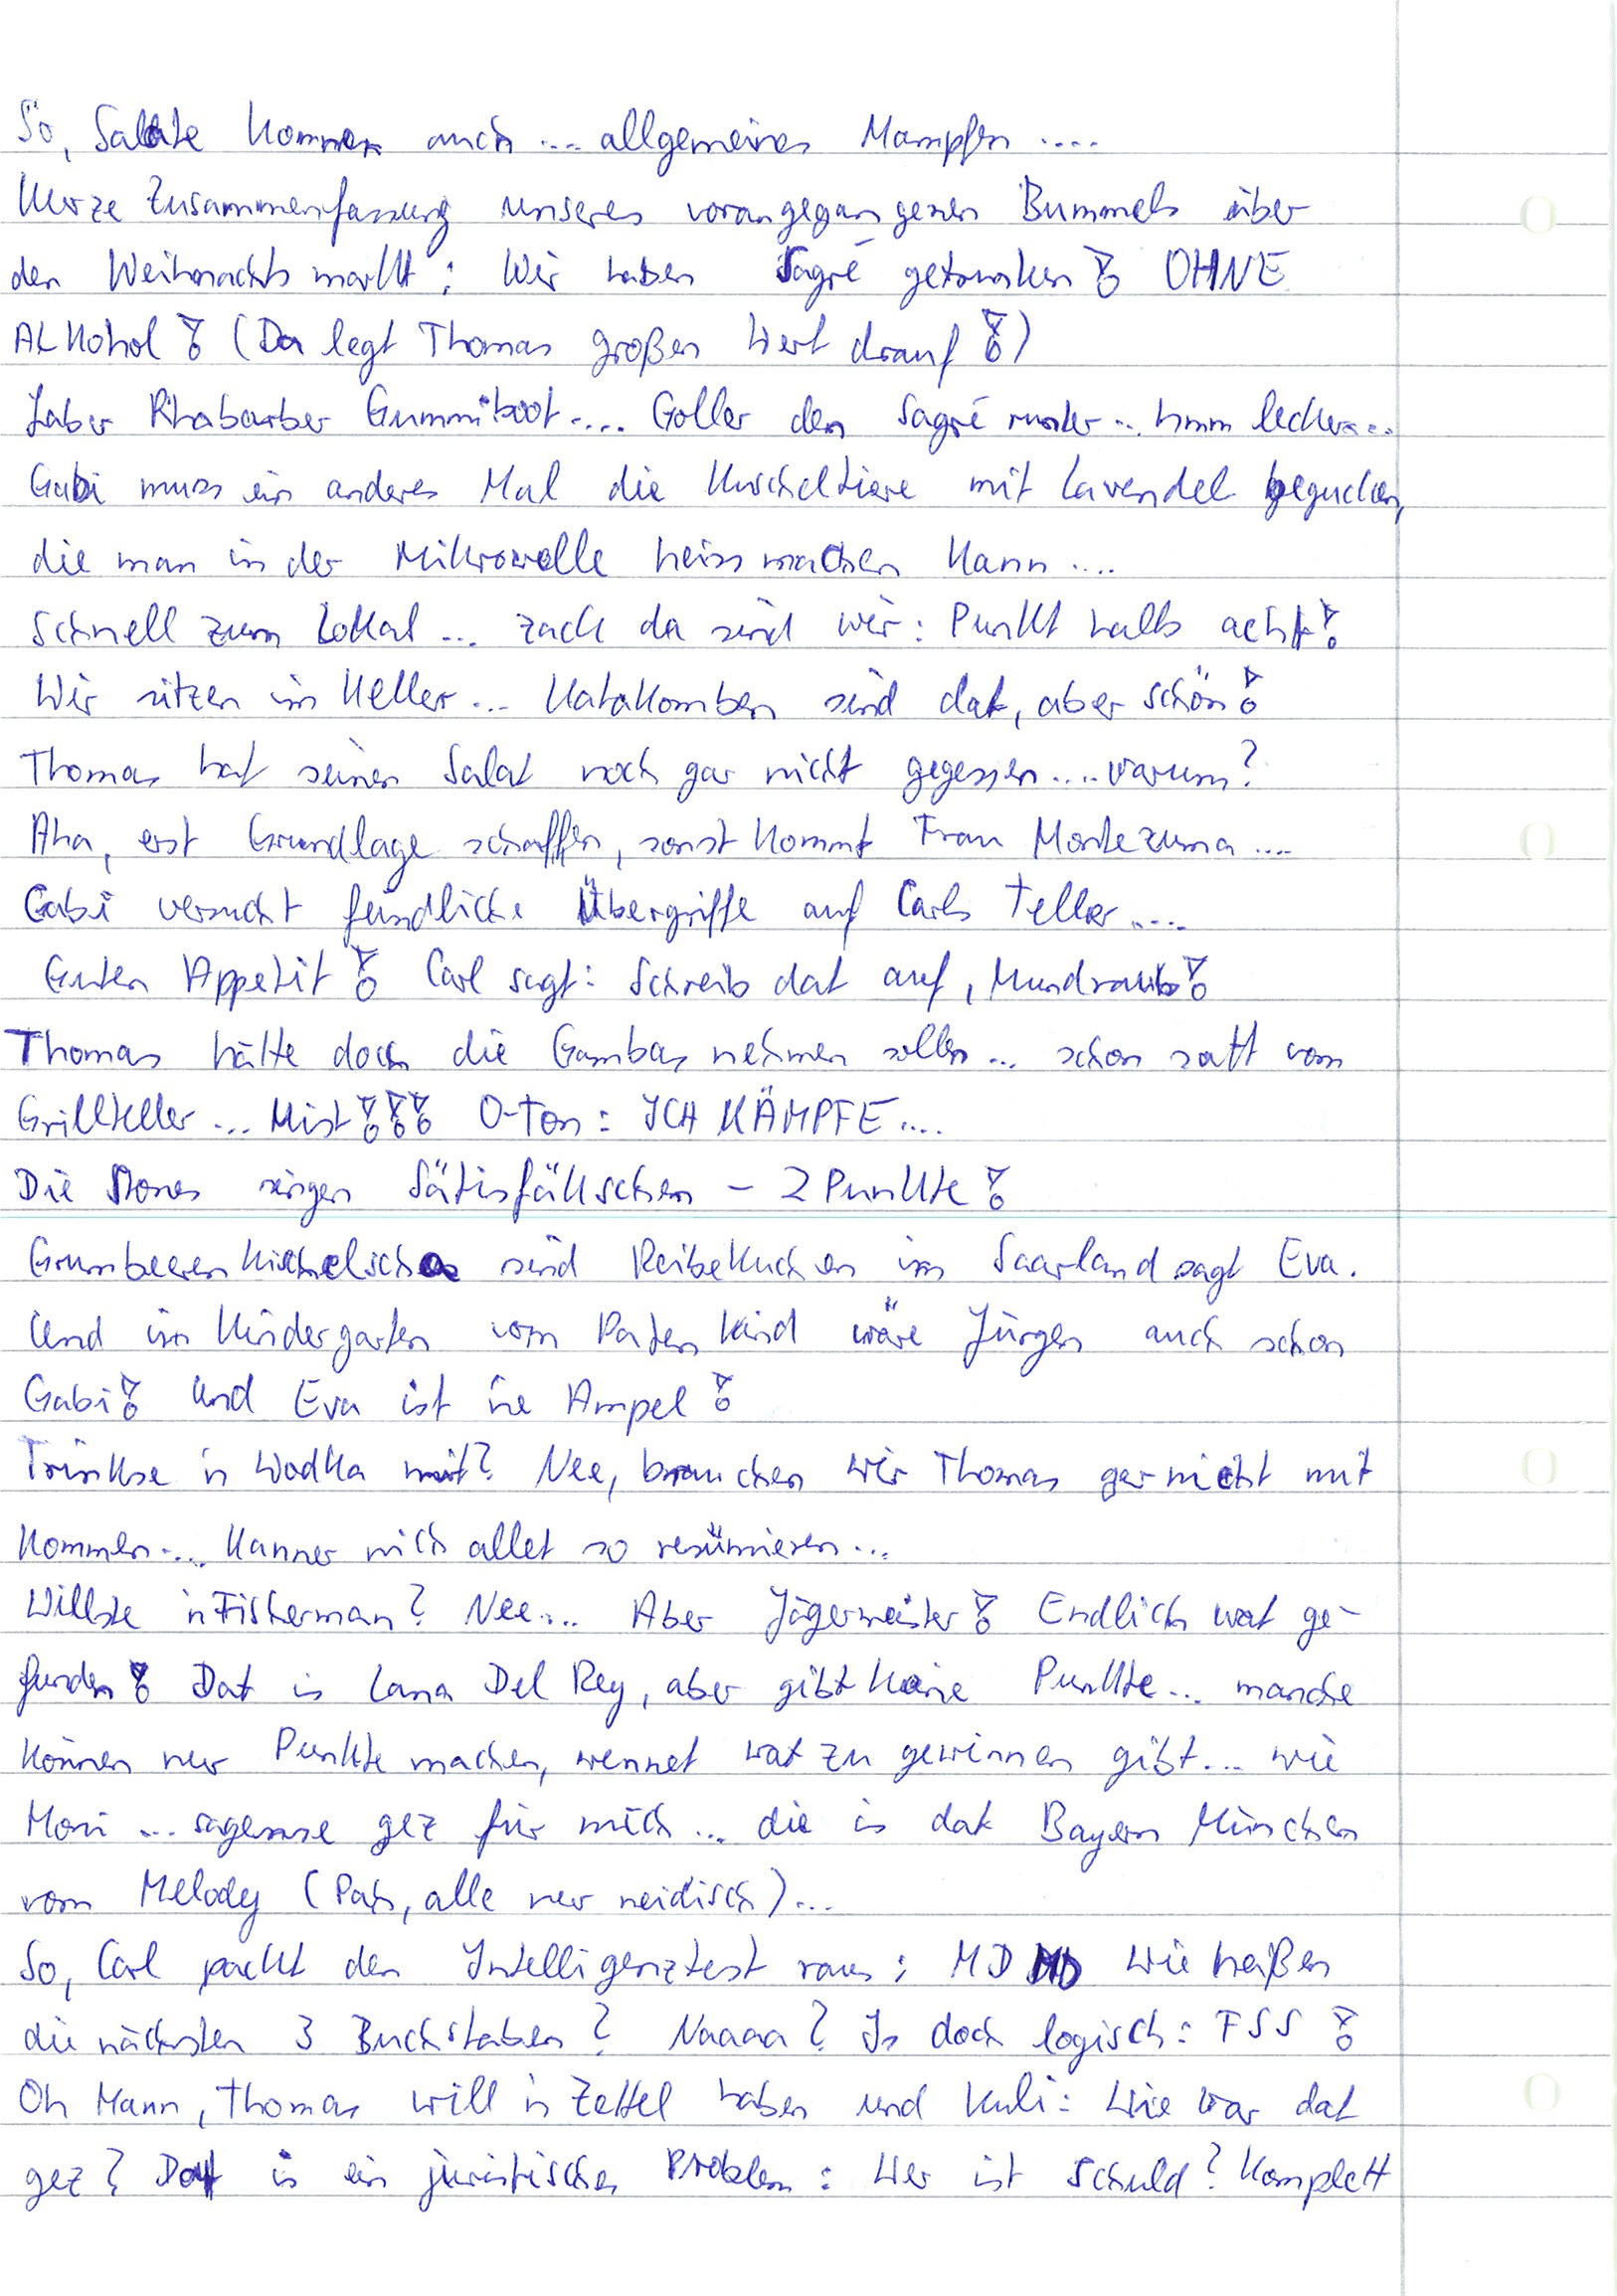 So, Salate kommen auch .... allgemeines Mampfen ....
Kurze Zusammenfassung unseres vorangegangenen Bummels über
den Weihnachtsmarkt: Wir haben Sagré getrunken! OHNE
ALKohol! (Da legt Thomas großen Wert drauf!)
Laber Rhabarber Gummiboot.... Goller den Sagré runter... hmm lecker...
Gabi muss ein anderes Mal die Kuscheltiere mit Lavendel begucken,
die man in der Mikrowelle heiss machen kann ....
Schnell zum Lokal ... zack da sind wir: Punkt halb acht!
Wir sitzen im Keller... Katakomben sind dat, aber schön!
Thomas hat seinen Salat noch gar nicht gegessen .... warum?
Aha, erst Grundlage schaffen, sonst kommt Frau Montezuma ....
Gabi versucht feindliche Übergriffe auf Carls Teller ....
Guten Appetit! Carl sagt: Schreib dat auf, Mundraub!
Thomas hätte doch die Gambas nehmen sollen ... schon satt vom
Grillteller ... Mist!!! O-Ton: ICH KÄMPFE ....
Die Stones singen Sätisfäkschen - 2 Punkte!
Grumbeerenkischelscha sind Reibekuchen im Saarland sagt Eva.
Und im Kindergarten vom Patenkind wäre Jürgen auch schon
Gabi! Und Eva ist ne Ampel!
Trinkse 'n Wodka mit? Nee, brauchen wir Thomas gar nicht mit
kommen .... Kanner mich allet so resümieren ...
Willste 'n Fisherman? Nee ... Aber Jägermeister! Endlich wat ge-
funden! Dat is Lana Del Rey, aber gibt keine Punkte ... manche
können nur Punkte machen, wennet wat zu gewinnen gibt ... wie
Moni ... sagense gez für mich ... die is dat Bayern München
vom Melody (Pah, alle nur neidisch) ...
So, Carl packt den Intelligenztest raus: MDMD Wie heißen
die nächsten 3 Buchstaben? Naaaa? Is doch logisch: FSS!
Oh Mann, Thomas will 'n Zettel haben und Kuli: Wie war dat
gez? Dat is ein juristisches Problem: Wer ist schuld? Komplett